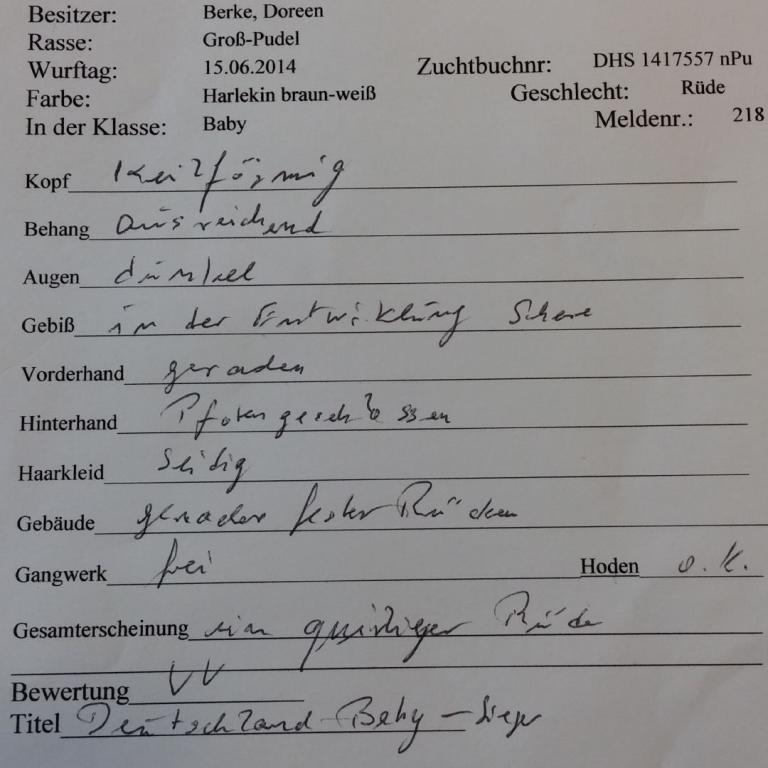 Besitzer: Berke, Doreen
Rasse: Groß-Pudel
Wurftag: 15.06.2014 Zuchtbuchnr: DHS 1417557 nPu
Farbe: Harlekin braun-weiß Geschlecht: Rüde
In der Klasse: Baby Meldenr.: 218
Kopf Keilförmig
Behang ausreichend
Augen dunkel
Gebiß in der Entwicklung Schere
Vorderhand geraden
Hinterhand Pfoten geschlossen
Haarkleid Seidig
Gebäude gerader fester Rücken
Gangwerk frei Hoden o.k.
Gesamterscheinung ein quirliger Rüde
Bewertung VV
Titel Deutschland-Baby-Sieger